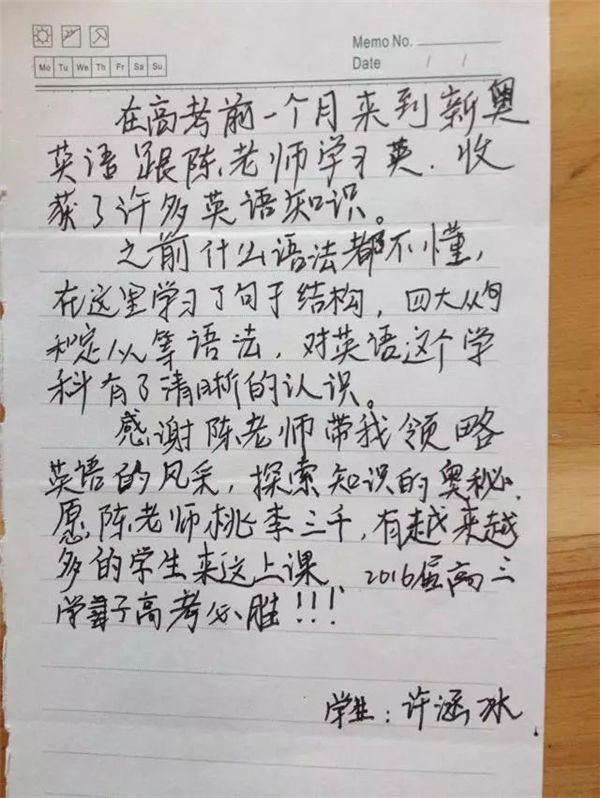 Memo No.
Mo Tu We Th Fr Sa Su
Date / /
在高考前一个月来到新奥
英语跟陈老师学习英.收
获了许多英语知识。
之前什么语法都不懂,
在这里学习了句子结构,四大从句
和定从等语法,对英语这个学
科有了清晰的认识。
感谢陈老师带我领略
英语的风采,探索知识的奥秘.
愿陈老师桃李三千,有越来越
多的学生来这上课 2016届高三
学子高考必胜!!!
学生:许涵冰